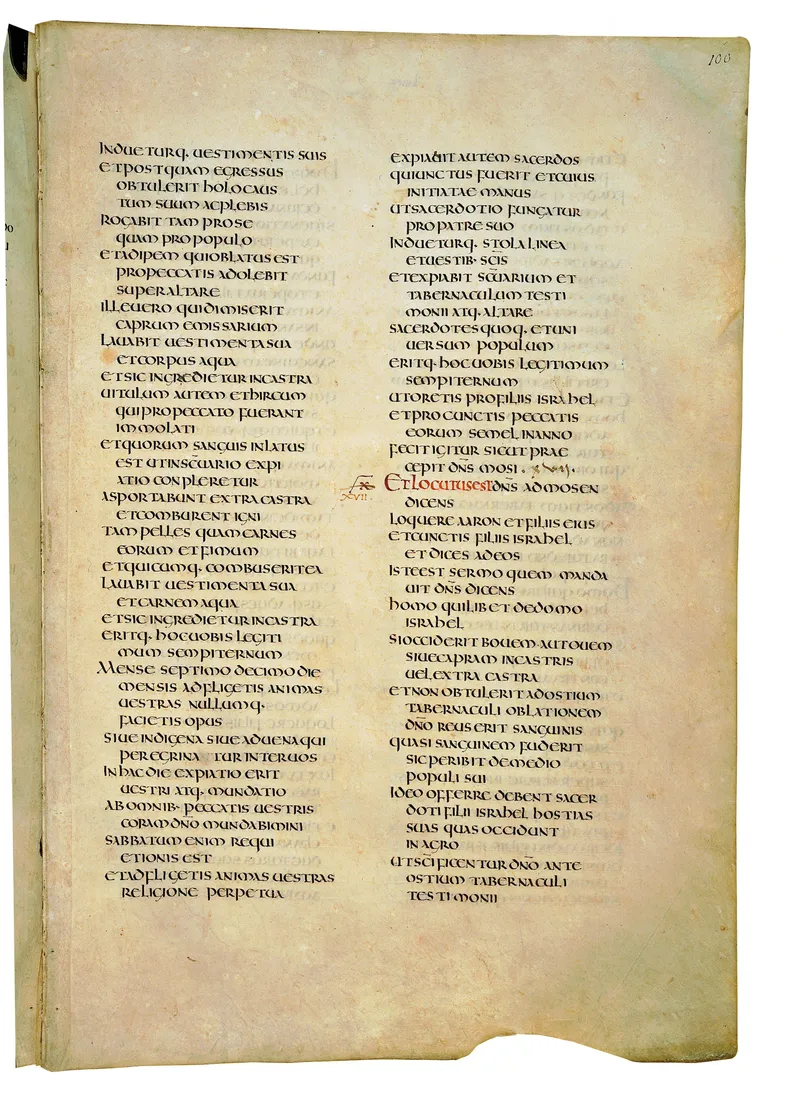 100
INDUETURQ· UESTIMENTIS SUIS
ET POSTQUAM EGRESSUS
OBTULERIT HOLOCAUS
TUM SUUM AC PLEBIS
ROGABIT TAM PRO SE
QUAM PRO POPULO
ET ADIPEM QUI OBLATUS EST
PRO PECCATIS ADOLEBIT
SUPER ALTARE
ILLE UERO QUI DIMISERIT
CAPRUM EMISSARIUM
LAUABIT UESTIMENTA SUA
ET CORPUS AQUA
ET SIC INGREDIETUR IN CASTRA
UITULUM AUTEM ET HIRCUM
QUI PRO PECCATO FUERANT
IMMOLATI
ET QUORUM SANGUIS INLATUS
EST UT IN SC̅UARIO EXPI
ATIO CONPLERETUR
ASPORTABUNT EXTRA CASTRA
ET COMBURENT IGNI
TAM PELLES QUAM CARNES
EORUM ET FIMUM
ET QUICUMQ· COMBUSERIT EA
LAUABIT UESTIMENTA SUA
ET CARNEM AQUA
ET SIC INGREDIETUR IN CASTRA
ERITQ· HOC UOBIS LEGITI
MUM SEMPITERNUM
MENSE SEPTIMO DECIMO DIE
MENSIS ADFLIGETIS ANIMAS
UESTRAS NULLUMQ·
FACIETIS OPUS
SIUE INDIGENA SIUE ADUENA QUI
PEREGRINA TUR INTER UOS
IN HAC DIE EXPIATIO ERIT
UESTRI ATQ· MUNDATIO
AB OMNIB· PECCATIS UESTRIS
CORAM DN̅O MUNDABIMINI
SABBATUM ENIM REQUI
ETIONIS EST
ET ADFLIGETIS ANIMAS UESTRAS
RELIGIONE PERPETUA
EXPIABIT AUTEM SACERDOS
QUI UNCTUS FUERIT ET CUIUS
INITIATAE MANUS
UT SACERDOTIO FUNGATUR
PRO PATRE SUO
INDUETURQ· STOLA LINEA
ET UESTIB· SC̅IS
ET EXPIABIT SC̅UARIUM ET
TABERNACULUM TESTI
MONII ATQ· ALTARE
SACERDOTES QUOQ· ET UNI
UERSUM POPULUM
ERITQ· HOC UOBIS LEGITIMUM
SEMPITERNUM
UT ORETIS PRO FILIIS ISRAHEL
ET PRO CUNCTIS PECCATIS
EORUM SEMEL IN ANNO
FECIT IGITUR SICUT PRAE
CEPIT DN̅S MOSI
XVII
ET LOCUTUS EST DN̅S AD MOSEN
DICENS
LOQUERE AARON ET FILIIS EIUS
ET CUNCTIS FILIIS ISRAHEL
ET DICES AD EOS
ISTE EST SERMO QUEM MANDA
UIT DN̅S DICENS
HOMO QUILIBET DE DOMO
ISRAHEL
SI OCCIDERIT BOUEM AUT OUEM
SIUE CAPRAM IN CASTRIS
UEL EXTRA CASTRA
ET NON OBTULERIT AD OSTIUM
TABERNACULI OBLATIONEM
DN̅O REUS ERIT SANGUINIS
QUASI SANGUINEM FUDERIT
SIC PERIBIT DE MEDIO
POPULI SUI
IDEO OFFERRE DEBENT SACER
DOTI FILII ISRAHEL HOSTIAS
SUAS QUAS OCCIDUNT
IN AGRO
UT SC̅IFICENTUR DN̅O ANTE
OSTIUM TABERNACULI
TESTIMONII